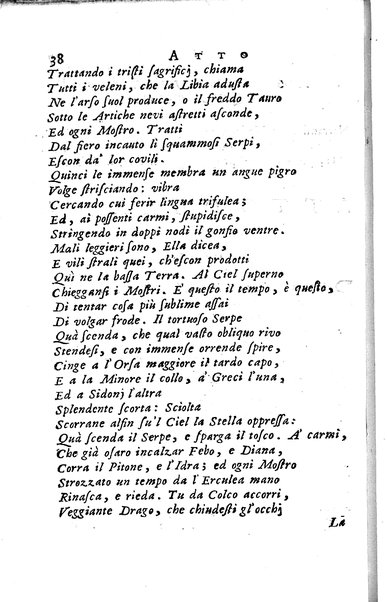 38 ATTO
Trattando i triſti ſagrificj, chiama
Tutti i veleni, che la Libia aduſta
Ne l'arſo ſuol produce, o il freddo Tauro
Sotto le Artiche nevi aſtretti aſconde,
Ed ogni Moſtro. Tratti
Dal fiero incauto li ſquammoſi Serpi,
Eſcon da' lor covili.
Quinci le immenſe membra un angue pigro
Volge ſtriſciando: vibra
Cercando cui ferir lingua trifulca;
Ed, ai poſſenti carmi, ſtupidiſce,
Stringendo in doppi nodi il gonfio ventre.
Mali leggieri ſono, Ella dicea,
E vili ſtrali quei, ch'eſcon prodotti
Quì ne la baſſa Terra. Al Ciel ſuperno
Chiegganſi i Moſtri. E' queſto il tempo, è queſto,
Di tentar coſa più ſublime aſſai
Di volgar frode. Il tortuoſo Serpe
Quà ſcenda, che qual vaſto obliquo rivo
Stendeſi, e con immenſe orrende ſpire,
Cinge a l'Orſa maggiore il tardo capo,
E a la Minore il collo, a' Greci l'una,
Ed a Sidonj l'altra
Splendente ſcorta: Sciolta
Scorrane alfin ſu'l Ciel la Stella oppreſſa:
Quà ſcenda il Serpe, e ſparga il toſco. A' carmi,
Che già oſaro incalzar Febo, e Diana,
Corra il Pitone, e l'Idra; ed ogni Moſtro
Strozzato un tempo da l'Erculea mano
Rinaſca, e rieda. Tu da Colco accorri,
Veggiante Drago, che chiudeſti gl'occhj
La